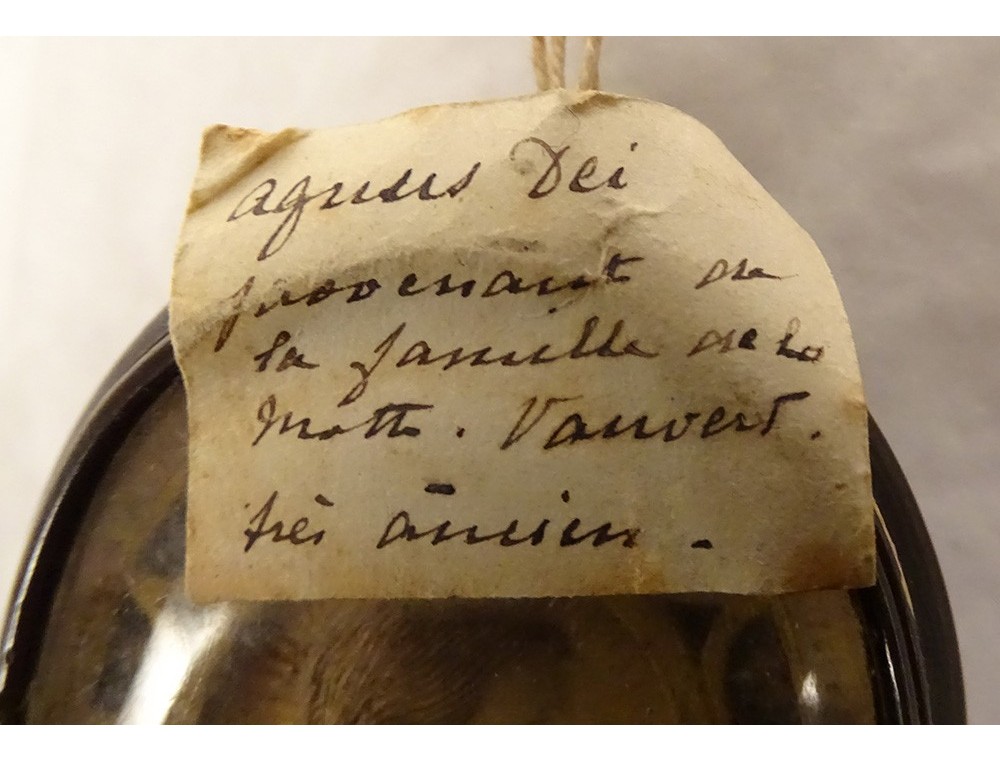 agnus Dei
provenant de
la famille de la
Motte. Vauvert.
très ancien.